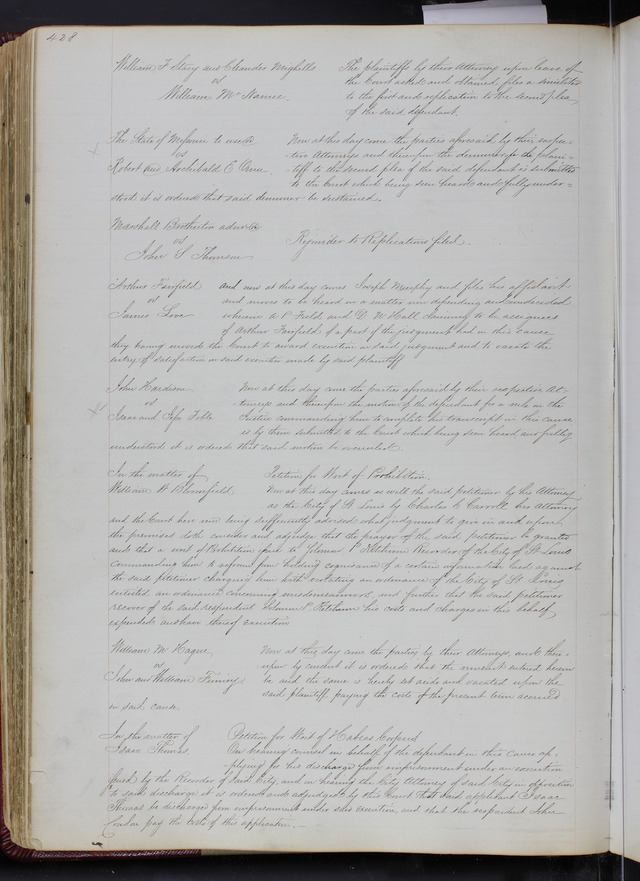 428
William F Stevy and Cleander Mighells The plaintiffs by their Attorney upon leave of
vs the Court asked and obtained, files a similiter
William Mc Namee. to the first and replication to the second plea
of the said defendant.
The State of Missouri to use &c Now at this day come the parties aforesaid by their respec=
vs tive Attorneys and thereupon the demurrer of the plain=
Robert and Archibald E Orme tiff to the second plea of the said defendant is submitted
to the Court which being seen heard and fully under=
stood it is ordered that said demurrer be sustained.
Marshall Brotherton admr &c
vs Rejoinder to Replications filed.
John S Thomson
Arthur Fairfield and now at this day comes Joseph Murphy and files his affidavit
vs and moves to be heard in a matter now depending and undecided
James Love wherein A P Field and D. W Hall claiming to be assignees
of Arthur Fairfield of a part of the judgment had in this cause
they having moved the Court to award execution on said judgment and to vacate the
entry of satisfaction on said execution made by said plaintiff
John Hardison Now at this day come the parties aforesaid by their respective At=
vs torneys and thereupon the motion of the defendant for a rule on the
Isaac and Justice commanding him to complete his transcript in this cause
is by them submitted to the Court which being seen heard and fully
understood it is ordered that said motion be overruled.
In the matter of Petition for Writ of Prohibition.
William W Bloomfield. Now at this day comes as well the said petitioner by his Attorney
as the City of St Louis by Charles C Carroll her Attorney
and the Court here now being sufficiently advised what judgment to give in and upon
the premises doth consider and adjudge that the prayer of the said petitioner be granted
and that a writ of Prohibition issue to P Ketchum Recorder of the City of St Louis
commanding him to refrain from holding cognizance of a certain information laid against
the said petitioner charging him with violating an ordinance of the City of St Louis
entitled an ordinance concerning misdemeanors, and further that the said petitioner
recover of the said respondent P. Ketchum his costs and charges in this behalf
expended and have thereof execution
William M Hague Now at this day come the parties by their Attorneys, and there=
vs upon by consent it is ordered that the nonsuit entered herein
John and William Finney be and the same is hereby set aside and vacated upon the
said plaintiff paying the costs of the present term accrued
in said cause.
In the matter of Petition for Writ of Habeas Corpus
Isaac Thomas. On hearing counsel in behalf of the defendant in this cause ap=
plying for his discharge from imprisonment under an execution
issued by the Recorder of Said City and on hearing the City Attorney of said City in opposition
to said discharge it is ordered and adjudged by this Court that said applicant Isaac
Thomas be discharged from imprisonment under said execution, and that the respondent John
Conlon pay the costs of this application.—